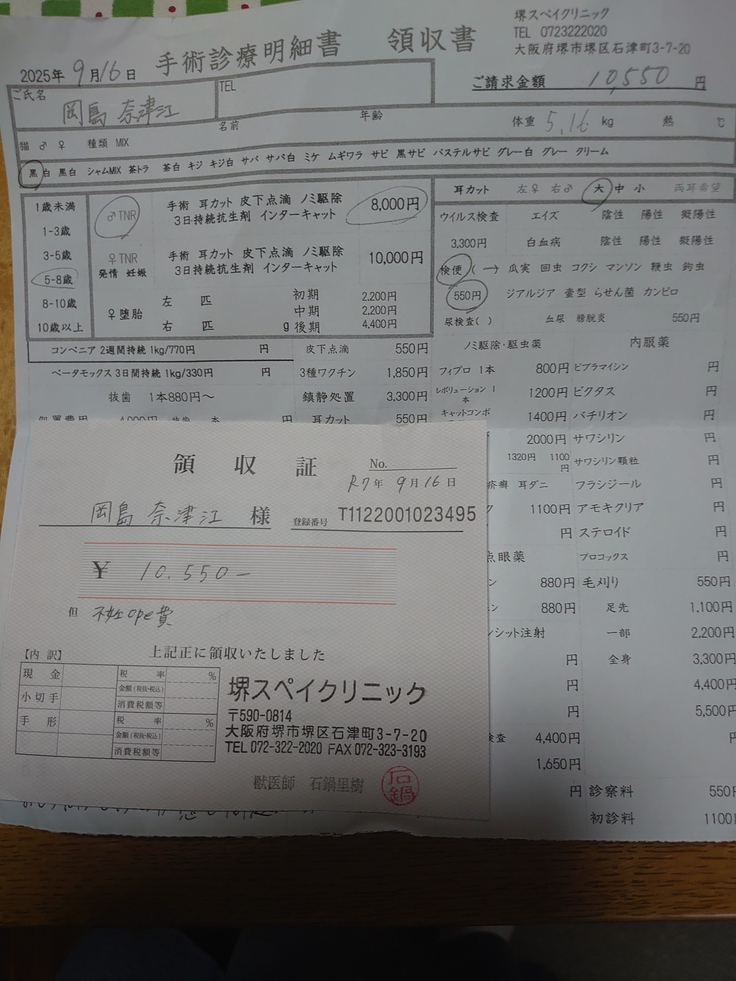 堺スペイクリニック
TEL 0723222020
大阪府堺市堺区石津町3-7-20
2025年 9月16日 手術診療明細書 領収書
ご請求金額 10,550 円
ご氏名 岡島 奈津江 TEL
名前 年齢 体重 5.16 kg 熱 ℃
猫 ♂ ♀ 種類 MIX
黒 白 黒白 シャムMIX 茶トラ 茶白 キジ キジ白 サバ サバ白 ミケ ムギワラ サビ 黒サビ パステルサビ グレー白 グレー クリーム
1歳未満
1-3歳
3-5歳
5-8歳
8-10歳
10歳以上
♂TNR 手術 耳カット 皮下点滴 ノミ駆除 8,000円
3日持続抗生剤 インターキャット
♀TNR 手術 耳カット 皮下点滴 ノミ駆除 10,000円
発情 妊娠 3日持続抗生剤 インターキャット
♀堕胎 左 匹 初期 2,200円
中期 2,200円
右 匹 g 後期 4,400円
コンベニア 2週間持続 1kg/770円 円 皮下点滴 550円
ベータモックス 3日間持続 1kg/330円 円 3種ワクチン 1,850円
抜歯 1本880円〜 鎮静処置 3,300円
円 耳カット 550円
耳カット 左♀ 右♂ 大 中 小 両耳希望
ウイルス検査 エイズ 陰性 陽性 擬陽性
3,300円 白血病 陰性 陽性 擬陽性
検便 (→) 瓜実 回虫 コクシ マンソン 鞭虫 鉤虫
550円 ジアルジア 壷型 らせん菌 カンピロ
尿検査( ) 血尿 膀胱炎 550円
ノミ駆除・駆虫薬 内服薬
フィプロ 1本 800円 ビブラマイシン 円
レボリューション 1本 1200円 ビクタス 円
キャットコンボ 1400円 バチリオン 円
2000円 サワシリン 円
1320円 1100円 サワシリン顆粒 円
疥癬 耳ダニ フラジール 円
1100円 アモキクリア 円
円 ステロイド 円
点眼薬 プロコックス 円
880円 毛刈り 550円
880円 足先 1,100円
ンシット注射 一部 2,200円
円 全身 3,300円
円 4,400円
円 5,500円
検査 4,400円 円
1,650円
円 診察料 550円
初診料 1100円
領収証
No.
R7年 9月16日
岡島 奈津江 様 登録番号 T1122001023495
¥ 10.550−
但 不妊ope費
上記正に領収いたしました
【内 訳】
現金 税率 %
金額(税抜・税込)
小切手 消費税額等
手形 税率 %
金額(税抜・税込)
消費税額等
堺スペイクリニック
〒590-0814
大阪府堺市堺区石津町3-7-20
TEL 072-322-2020 FAX 072-323-3193
獣医師 石鍋里樹
石鍋